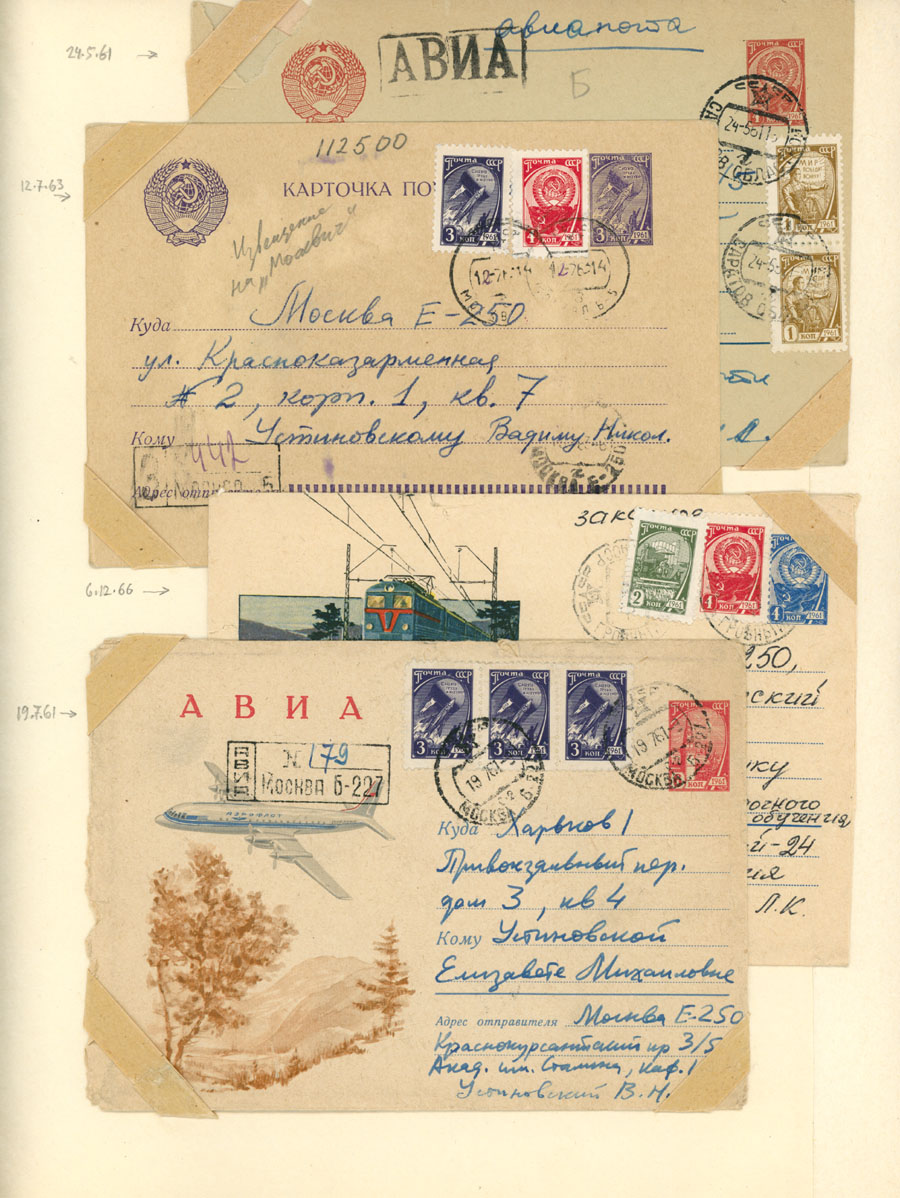 24.5.61 →
авиапочта
АВИА
Б
ПОЧТА СССР
4 КОП 1961
24-561
МИР
1 КОП 1961
САРАТОВ ОБЛ.
24-5
1 КОП 1961
12.7.63 →
112500
КАРТОЧКА ПО
Почта СССР
3 КОП 1961
Почта СССР
4 КОП 1961
Почта СССР
3 КОП 1961
Извещение
на "Москвич"
12-763-14
12-763-14
Куда Москва Е-250
ул. Красноказарменная
№ 2, корп. 1, кв. 7
Кому Устиновскому Вадиму Никол.
442
Москва Б
МОСКВА Е-250
Адрес отп
сти
Д.
6.12.66 →
Почта СССР
2 КОП 1961
Почта СССР
4 КОП 1961
СССР
4 КОП 1961
ГРОЗНЫЙ
250,
ский
ку
очного
обучения
й-24
ия
Л.К.
19.7.61 →
АВИА
Почта СССР
3 КОП 1961
Почта СССР
3 КОП 1961
Почта СССР
3 КОП 1961
Почта СССР
4 КОП 1961
АВИА
N 179
Москва Б-227
19 761
МОСКВА Б-227
19 761
МОСКВА Б-227
АЭРОФЛОТ
Куда Харьков 1
Привокзальный пер.
дом 3, кв 4
Кому Устиновской
Елизавете Михайловне
Адрес отправителя Москва Е-250
Краснокурсантский пр 3/5
Акад. им. Сталина, каф. 1
Устиновский В.Н.